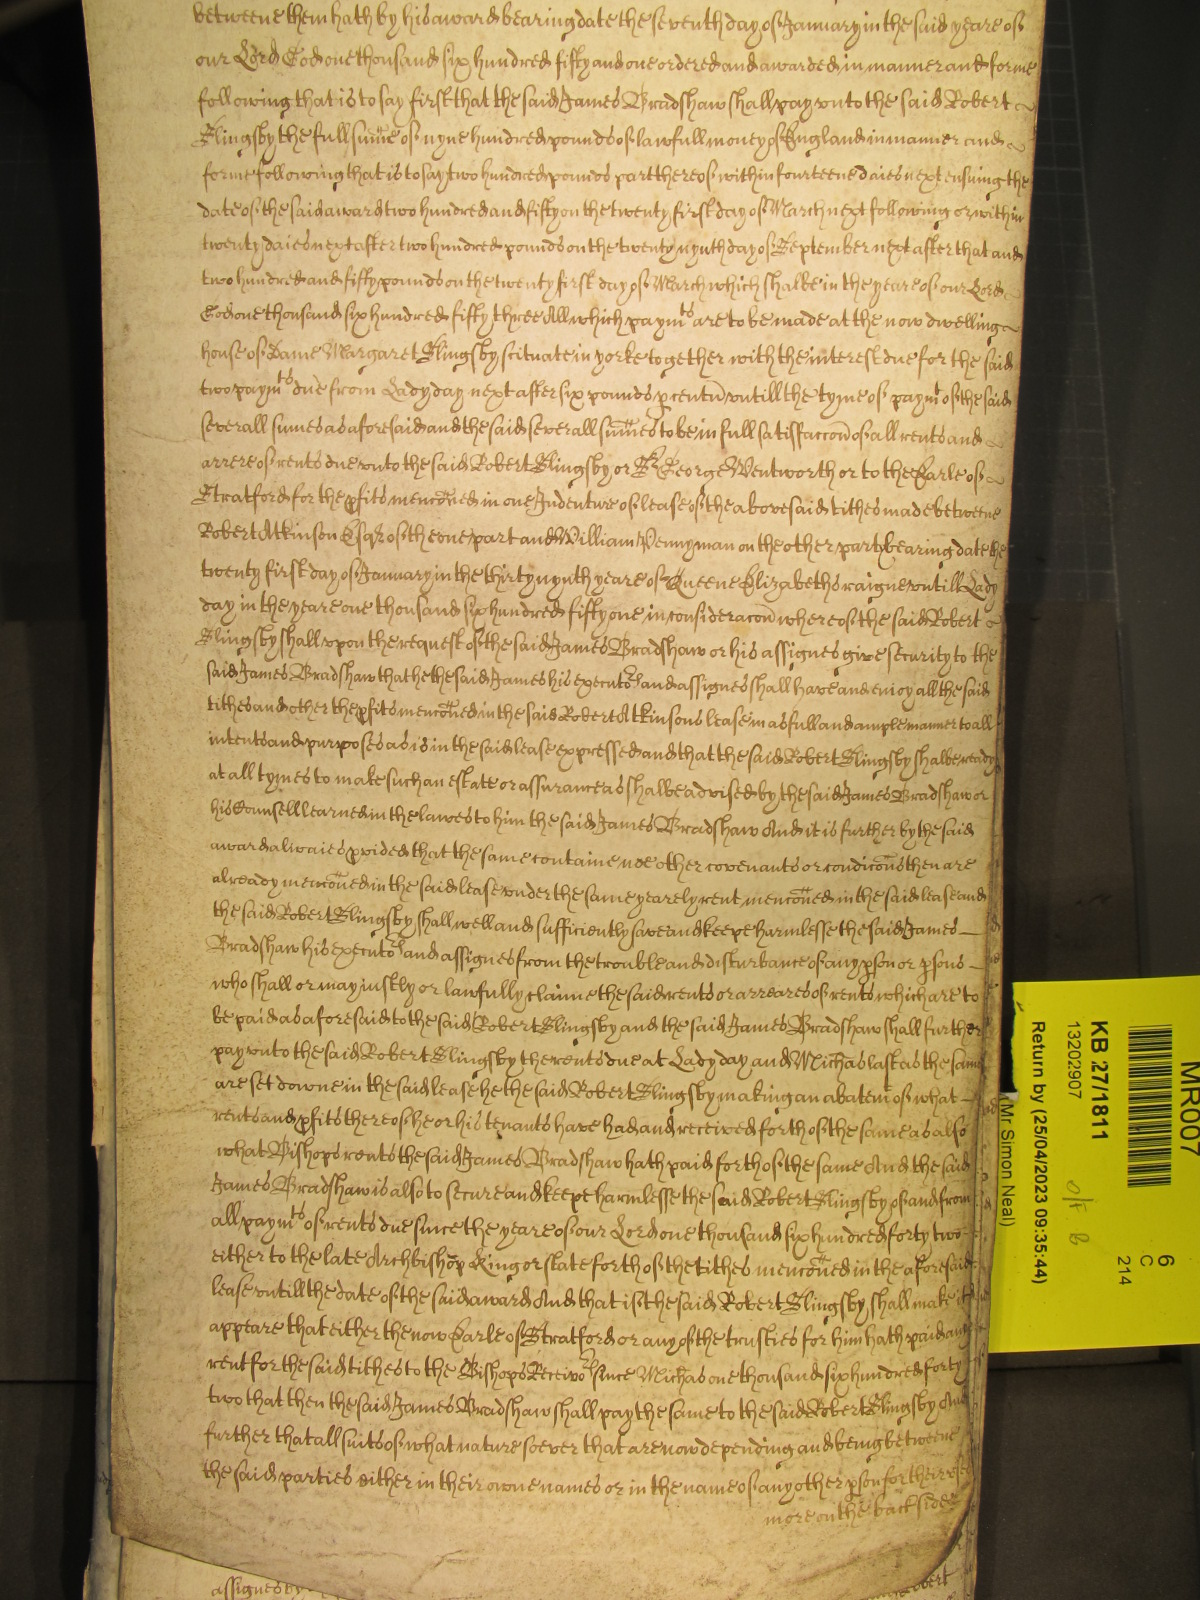 betweene them hath by his award bearing date the seventh day of January in the said yeare of
our Lord God one thousand six hundred fifty and one ordered and awarded in manner and forme
following that is to say first that the said James Bradshaw shall pay unto the said Robert
Slingsby the full sume of nyne hundred pounds of lawfull money of England in manner and
forme following that is to say two hundred pounds part thereof within fourteene daies next ensuing the
date of the said award two hundred and fifty on the twenty first day of March next following or within
twenty daies next after two hundred pounds on the twenty nynth day of September next after that and
two hundred and fifty pounds on the twenty first day of March which shalbe in the yeare of our Lord
God one thousand six hundred fifty three All which paymts are to be made at the now dwelling
house of Dame Margaret Slingsby scituate in yorke together with the interest due for the said
two paymts due from Ladyday next after six pounds p centu untill the tyme of paymt of the said
severall sumes as aforesaid and the said severall sumes to be in full satisfaccon of all rents and
arrere of rents due unto the said Robert Slingsby or Sr George Wentworth or to the Earle of
Stratford for the pfits menconed in one Indenture of lease of the abovesaid tithes made betweene
Robert Atkinson Esqr of the one part and William Pennyman on the other part bearing date the
twenty first day of January in the thirty nynth yeare of Queene Elizabeths raigne untill Lady
day in the yeare one thousand six hundred fifty one in consideracon whereof the said Robert
Slingsby shall upon the request of the said James Bradshaw or his assignes give security to the
said James Bradshaw that he the said James his executors and assignes shall have and enioy all the said
tithes and other the pfits menconed in the said Robert Atkinsons lease in as full and ample manner to all
intents and purposes as is in the said lease expressed and that the said Robert Slingsby shalbe ready
at all tymes to make such an estate or assurance as shalbe advised by the said James Bradshaw or
his Counsell learned in the lawes to him the said James Bradshaw And it is further by the said
award alwaies pvided that the same containe noe other covenants or condicons then are
already menconed in the said lease under the same yearely rent menconed in the said lease and
the said Robert Slingsby shall well and sufficiently save and keepe harmlesse the said James
Bradshaw his executors and assignes from the trouble and disturbance of any pson or psons
who shall or may iustly or lawfully claime the said rents or arreares of rents which are to
be paid as aforesaid to the said Robert Slingsby and the said James Bradshaw shall further
pay unto the said Robert Slingsby the rents due at Ladyday and Michas last as the same
are set downe in the said lease he the said Robert Slingsby making an abatemt of what
rents and pfits thereof he or his tenants have had and received forth of the same as also
what Bishops rents the said James Bradshaw hath paid forth of the same And the said
James Bradshaw is also to secure and keepe harmlesse the said Robert Slingsby of and from
all paymts of rents due since the yeare of our Lord one thousand six hundred forty two
either to the late Archbishop King or state forth of the tithes menconed in the aforesaid
lease untill the date of the said award And that if the said Robert Slingsby shall make it
appeare that either the now Earle of Stratford or any of the trusties for him hath paid any
rent for the said tithes to the Bishops Receivor since Michas one thousand six hundred forty
two that then the said James Bradshaw shall pay the same to the said Robert Slingsby And
further that all suits of what nature soever that are now depending and being betweene
the said parties either in their owne names or in the name of any other pson for their uses
more on the back side
assignes by
MR007
6
C
214
KB 27/1811
13202907
Return by (25/04/2023 09:35:44)
(Mr Simon Neal)